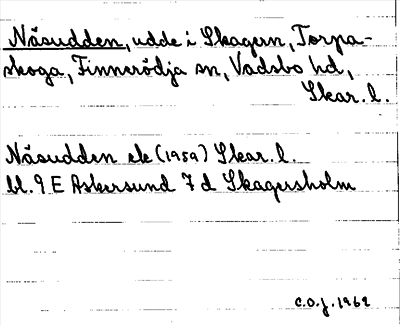 Näsudden, udde i Skagern, Torpa-
skoga, Finnerödja sn, Vadsbo hd,
Skar. l.
Näsudden ek (1959) Skar. l.
bl. 9 E Askersund 7 d Skagersholm
C.O.J. 1962